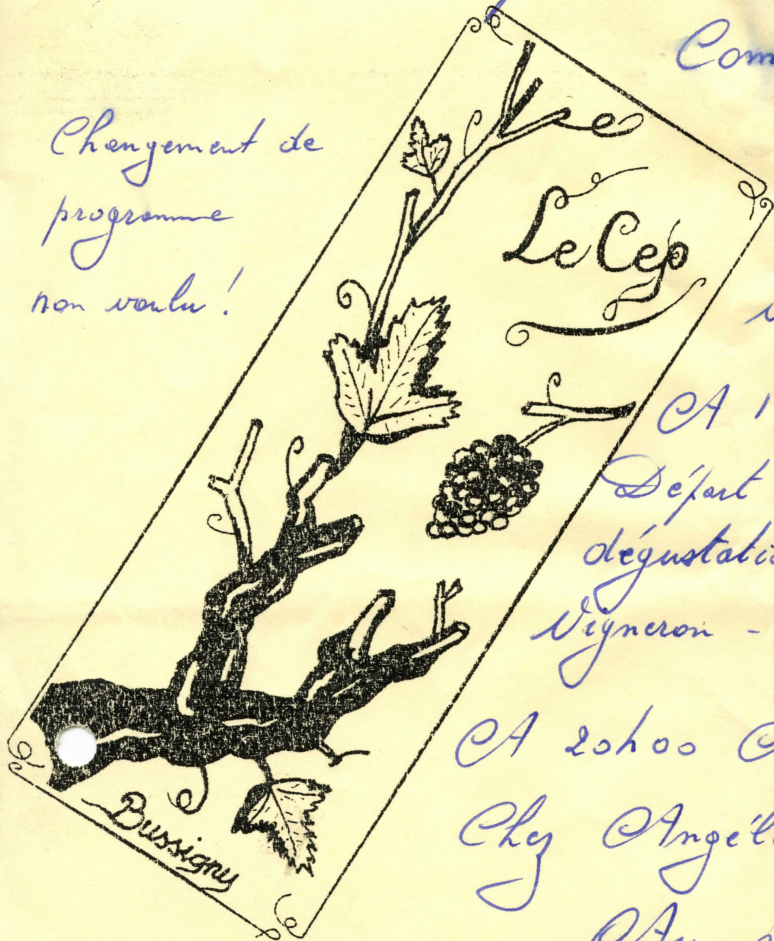 Changement de
programme
non voulu !
Le Cep
Bussigny
Com
A 1
Départ
dégustatio
Vigneron -
A 20h00
Chez Angél